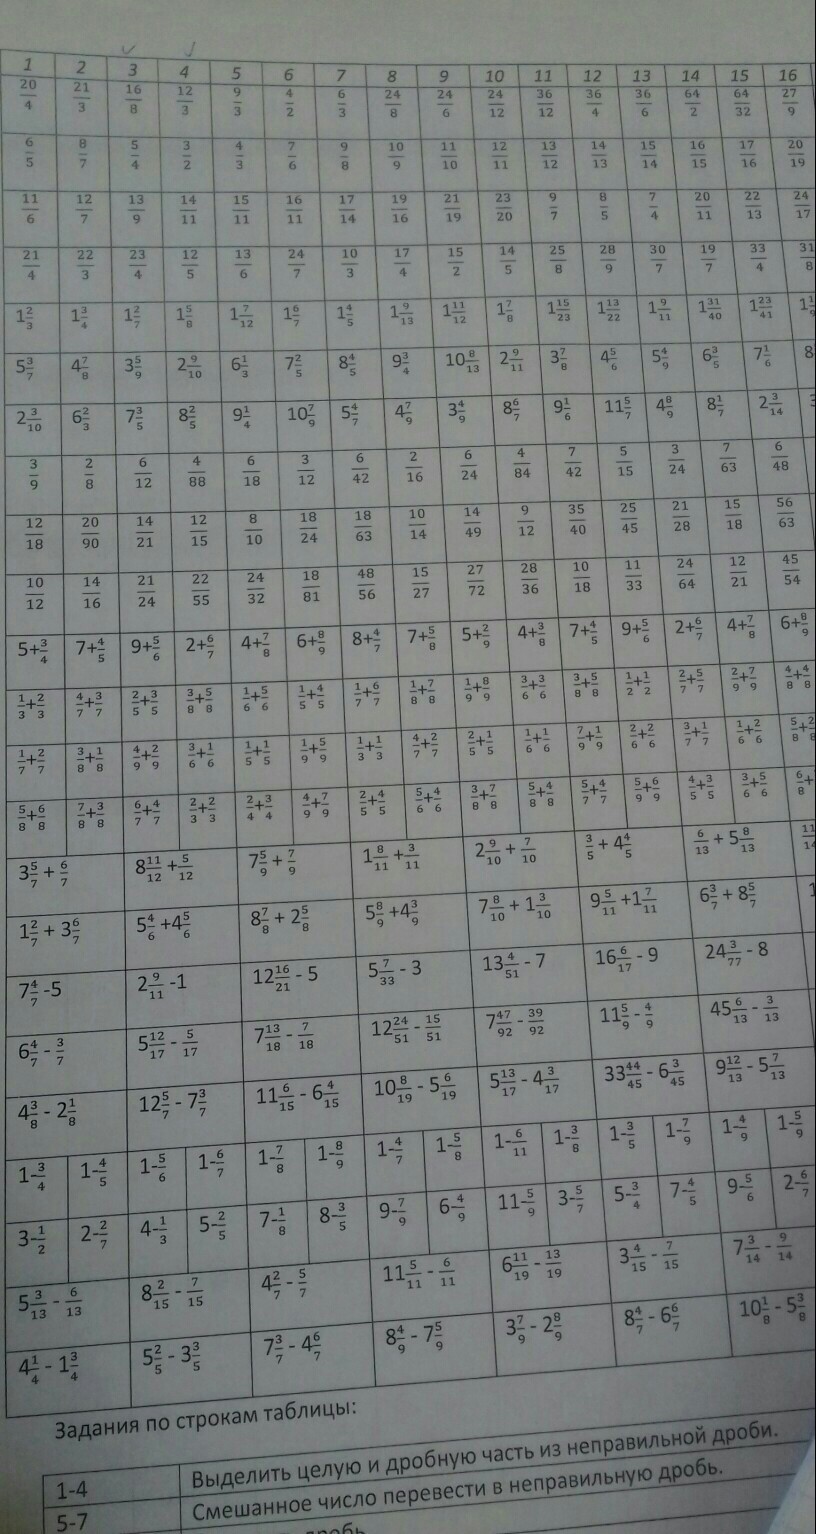 1 2 3 4 5 6 7 8 9 10 11 12 13 14 15 16
20/4 21/3 16/8 12/3 9/3 4/2 6/3 24/8 24/6 24/12 36/12 36/4 36/6 64/2 64/32 27/9
6/5 8/7 5/4 3/2 4/3 7/6 9/8 10/9 11/10 12/11 13/12 14/13 15/14 16/15 17/16 20/19
11/6 12/7 13/9 14/11 15/11 16/11 17/14 19/16 21/19 23/20 9/7 8/5 7/4 20/11 22/13 24/17
21/4 22/3 23/4 12/5 13/6 24/7 10/3 17/4 15/2 14/5 25/8 28/9 30/7 19/7 33/4 31/8
1 2/3 1 3/4 1 2/7 1 5/8 1 7/12 1 6/7 1 4/5 1 9/13 1 11/12 1 7/8 1 15/23 1 13/22 1 9/11 1 31/40 1 23/41
5 3/7 4 7/8 3 5/9 2 9/10 6 1/3 7 2/5 8 4/5 9 3/4 10 8/13 2 9/11 3 7/8 4 5/6 5 4/9 6 3/5 7 1/6 8
2 3/10 6 2/3 7 3/5 8 2/5 9 1/4 10 7/9 5 4/7 4 7/9 3 4/9 8 6/7 9 1/6 11 5/7 4 8/9 8 1/7 2 3/14
3/9 2/8 6/12 4/88 6/18 3/12 6/42 2/16 6/24 4/84 7/42 5/15 3/24 7/63 6/48
12/18 20/90 14/21 12/15 8/10 18/24 18/63 10/14 14/49 9/12 35/40 25/45 21/28 15/18 56/63
10/12 14/16 21/24 22/55 24/32 18/81 48/56 15/27 27/72 28/36 10/18 11/33 24/64 12/21 45/54
5+3/4 7+4/5 9+5/6 2+6/7 4+7/8 6+8/9 8+4/7 7+5/8 5+2/9 4+3/8 7+4/5 9+5/6 2+6/7 4+7/8 6+8/9
1/3+2/3 4/7+3/7 2/5+3/5 3/8+5/8 1/6+5/6 1/5+4/5 1/7+6/7 1/8+7/8 1/9+8/9 3/6+3/6 3/8+5/8 1/2+1/2 2/7+5/7 2/9+7/9 4/8+4/8
1/7+2/7 3/8+1/8 4/9+2/9 3/6+1/6 1/5+1/5 1/9+5/9 1/3+1/3 4/7+2/7 2/5+1/5 1/6+1/6 7/9+1/9 2/6+2/6 3/7+1/7 1/6+2/6 5/8+2/8
5/8+6/8 7/8+3/8 6/7+4/7 2/3+2/3 2/4+3/4 4/9+7/9 2/5+4/5 5/6+4/6 3/8+7/8 5/8+4/8 5/7+4/7 5/9+6/9 4/5+3/5 3/6+5/6
3 5/7 + 6/7 8 11/12 + 5/12 7 5/9 + 7/9 1 8/11 + 3/11 2 9/10 + 7/10 3/5 + 4 4/5 6/13 + 5 8/13
1 2/7 + 3 6/7 5 4/6 +4 5/6 8 7/8 + 2 5/8 5 8/9 +4 3/9 7 8/10 + 1 3/10 9 5/11 +1 7/11 6 3/7 + 8 5/7
7 4/7 -5 2 9/11 -1 12 16/21 - 5 5 7/33 - 3 13 4/51 - 7 16 6/17 - 9 24 3/77 - 8
6 4/7 - 3/7 5 12/17 - 5/17 7 13/18 - 7/18 12 24/51 - 15/51 7 47/92 - 39/92 11 5/9 - 4/9 45 6/13 - 3/13
4 3/8 - 2 1/8 12 5/7 - 7 3/7 11 6/15 - 6 4/15 10 8/19 - 5 6/19 5 13/17 - 4 3/17 33 44/45 - 6 3/45 9 12/13 - 5 7/13
1-3/4 1-4/5 1-5/6 1-6/7 1-7/8 1-8/9 1-4/7 1-5/8 1-6/11 1-3/8 1-3/5 1-7/9 1-4/9 1-5/9
3-1/2 2-2/7 4-1/3 5-2/5 7-1/8 8-3/5 9-7/9 6-4/9 11-5/9 3-5/7 5-3/4 7-4/5 9-5/6 2-6/7
5 3/13 - 6/13 8 2/15 - 7/15 4 2/7 - 5/7 11 5/11 - 6/11 6 11/19 - 13/19 3 4/15 - 7/15 7 3/14 - 9/14
4 1/4 - 1 3/4 5 2/5 - 3 3/5 7 3/7 - 4 6/7 8 4/9 - 7 5/9 3 7/9 - 2 8/9 8 4/7 - 6 6/7 10 1/8 - 5 3/8
Задания по строкам таблицы:
1-4 Выделить целую и дробную часть из неправильной дроби.
5-7 Смешанное число перевести в неправильную дробь.